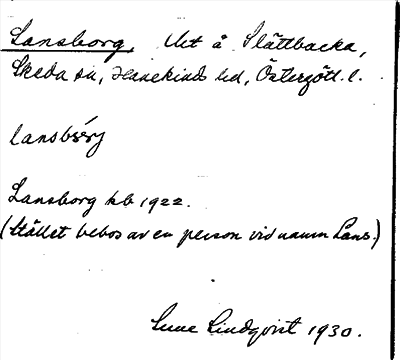 Lansborg, lht å Slättbacka,
Skeda sn, Hanekinds hd, Östergötl. l.
lansbǒrj
Lansborg kb 1922.
(Stället bebos av en person vid namn Lans.)
Sune Lindqvist 1930.